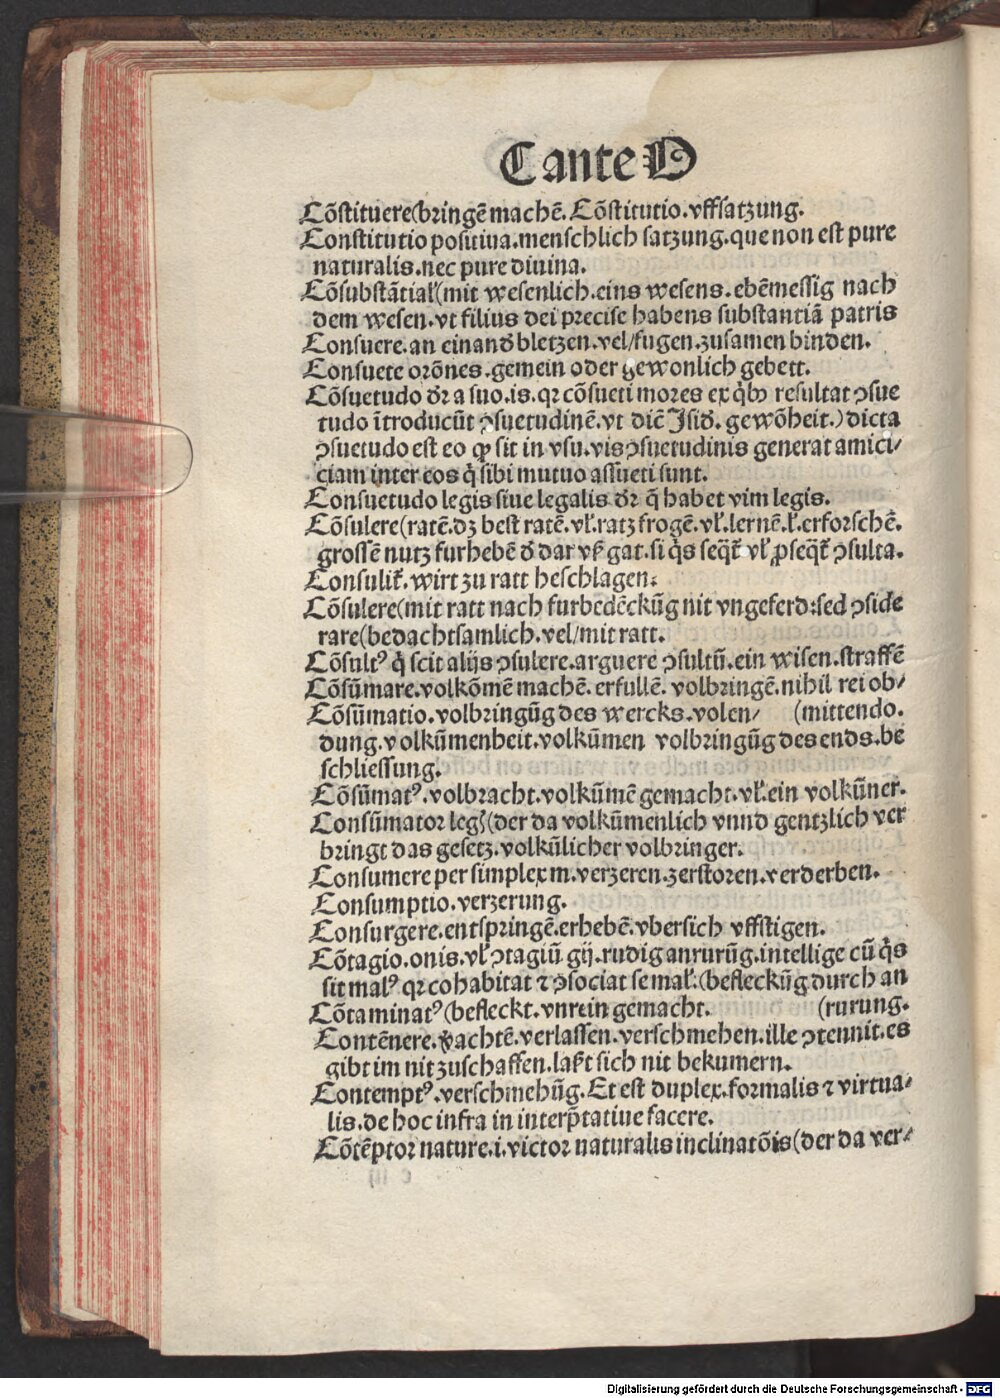 C ante D
Cõstituere(bringẽ machẽ. Cõstitutio.vffsatzung.
Constitutio positiua.menschlich satzung.que non est pure
naturalis.nec pure diuina.
Cõsubstãtial̛(mit wesenlich.eins wesens.ebẽmessig nach
dem wesen.vt filius dei precise habens substantiã patris
Consuere.an einand̛ bletzen.vel/fugen.zusamen binden.
Consuete orõnes.gemein oder gewonlich gebett.
Cõsuetudo d̛r a suo.is.qꝛ cõsueti mores ex q̃bꝰ resultat ꝯsue
tudo ĩtroducũt ꝯsuetudinẽ.vt dicẽ Jsid̛.gewõheit.) dicta
ꝯsuetudo est eo ꝙ sit in vsu.vis ꝯsuetudinis generat amici/
ciam inter eos q̃ sibi mutuo assueti sunt.
Consuetudo legis siue legalis d̛r q̃ habet vim legis.
Cõsulere(ratẽ.dz best ratẽ.vl̛.ratz frogẽ.vl̛.lernẽ.l̛.erforschẽ.
grossẽ nutz furhebẽ d̛ dar vß gat.si q̃s seq̃t̛ vl̛ ꝓseq̃t̛ ꝯsulta.
Consulit̛.wirt zu ratt beschlagen.
Cõsulere(mit ratt nach furbedẽckũg nit vngeferd:sed ꝯside
rare(bedachtsamlich.vel/mit ratt.
Cõsultꝰ q̃ scit alijs ꝯsulere.arguere ꝯsultũ.ein wisen.straffẽ
Cõsũmare.volkõmẽ machẽ.erfullẽ.volbringẽ.nihil rei ob/
Cõsũmatio.volbringũg des wercks.volen/ (mittendo.
dung.volkũmenheit.volkũmen volbringũg des ends.be
schliessung.
Cõsũmatꝰ.volbracht.volkũmẽ gemacht.vl̛.ein volkũner.
Consũmator legꝭ(der da volkũmenlich vnnd gentzlich ver
bringt das gesetz.volkũlicher volbringer.
Consumere per simplex m.verzeren.zerstoren.verderben.
Consumptio.verzerung.
Consurgere.entspringẽ.erhebẽ.vbersich vffstigen.
Cõtagio.onis.vl̛ ꝯtagiũ gij.rudig anrurũg.intellige cũ q̃s
sit malꝰ qꝛ cohabitat ⁊ ꝯsociat se mal̛.(befleckũg durch an
Cõtaminatꝰ(befleckt.vnrein gemacht. (rurung.
Contẽnere.v̛achtẽ.verlassen.verschmehen.ille ꝯtennit.es
gibt im nit zuschaffen.laßt sich nit bekumern.
Contemptꝰ.verschmehũg.Et est duplex.formalis ⁊ virtua/
lis.de hoc infra in interp̃tatiue facere.
Cõtẽptor nature.i.victor naturalis inclinatõis(der da ver/
Digitalisierung gefördert durch die Deutsche Forschungsgemeinschaft - DFG